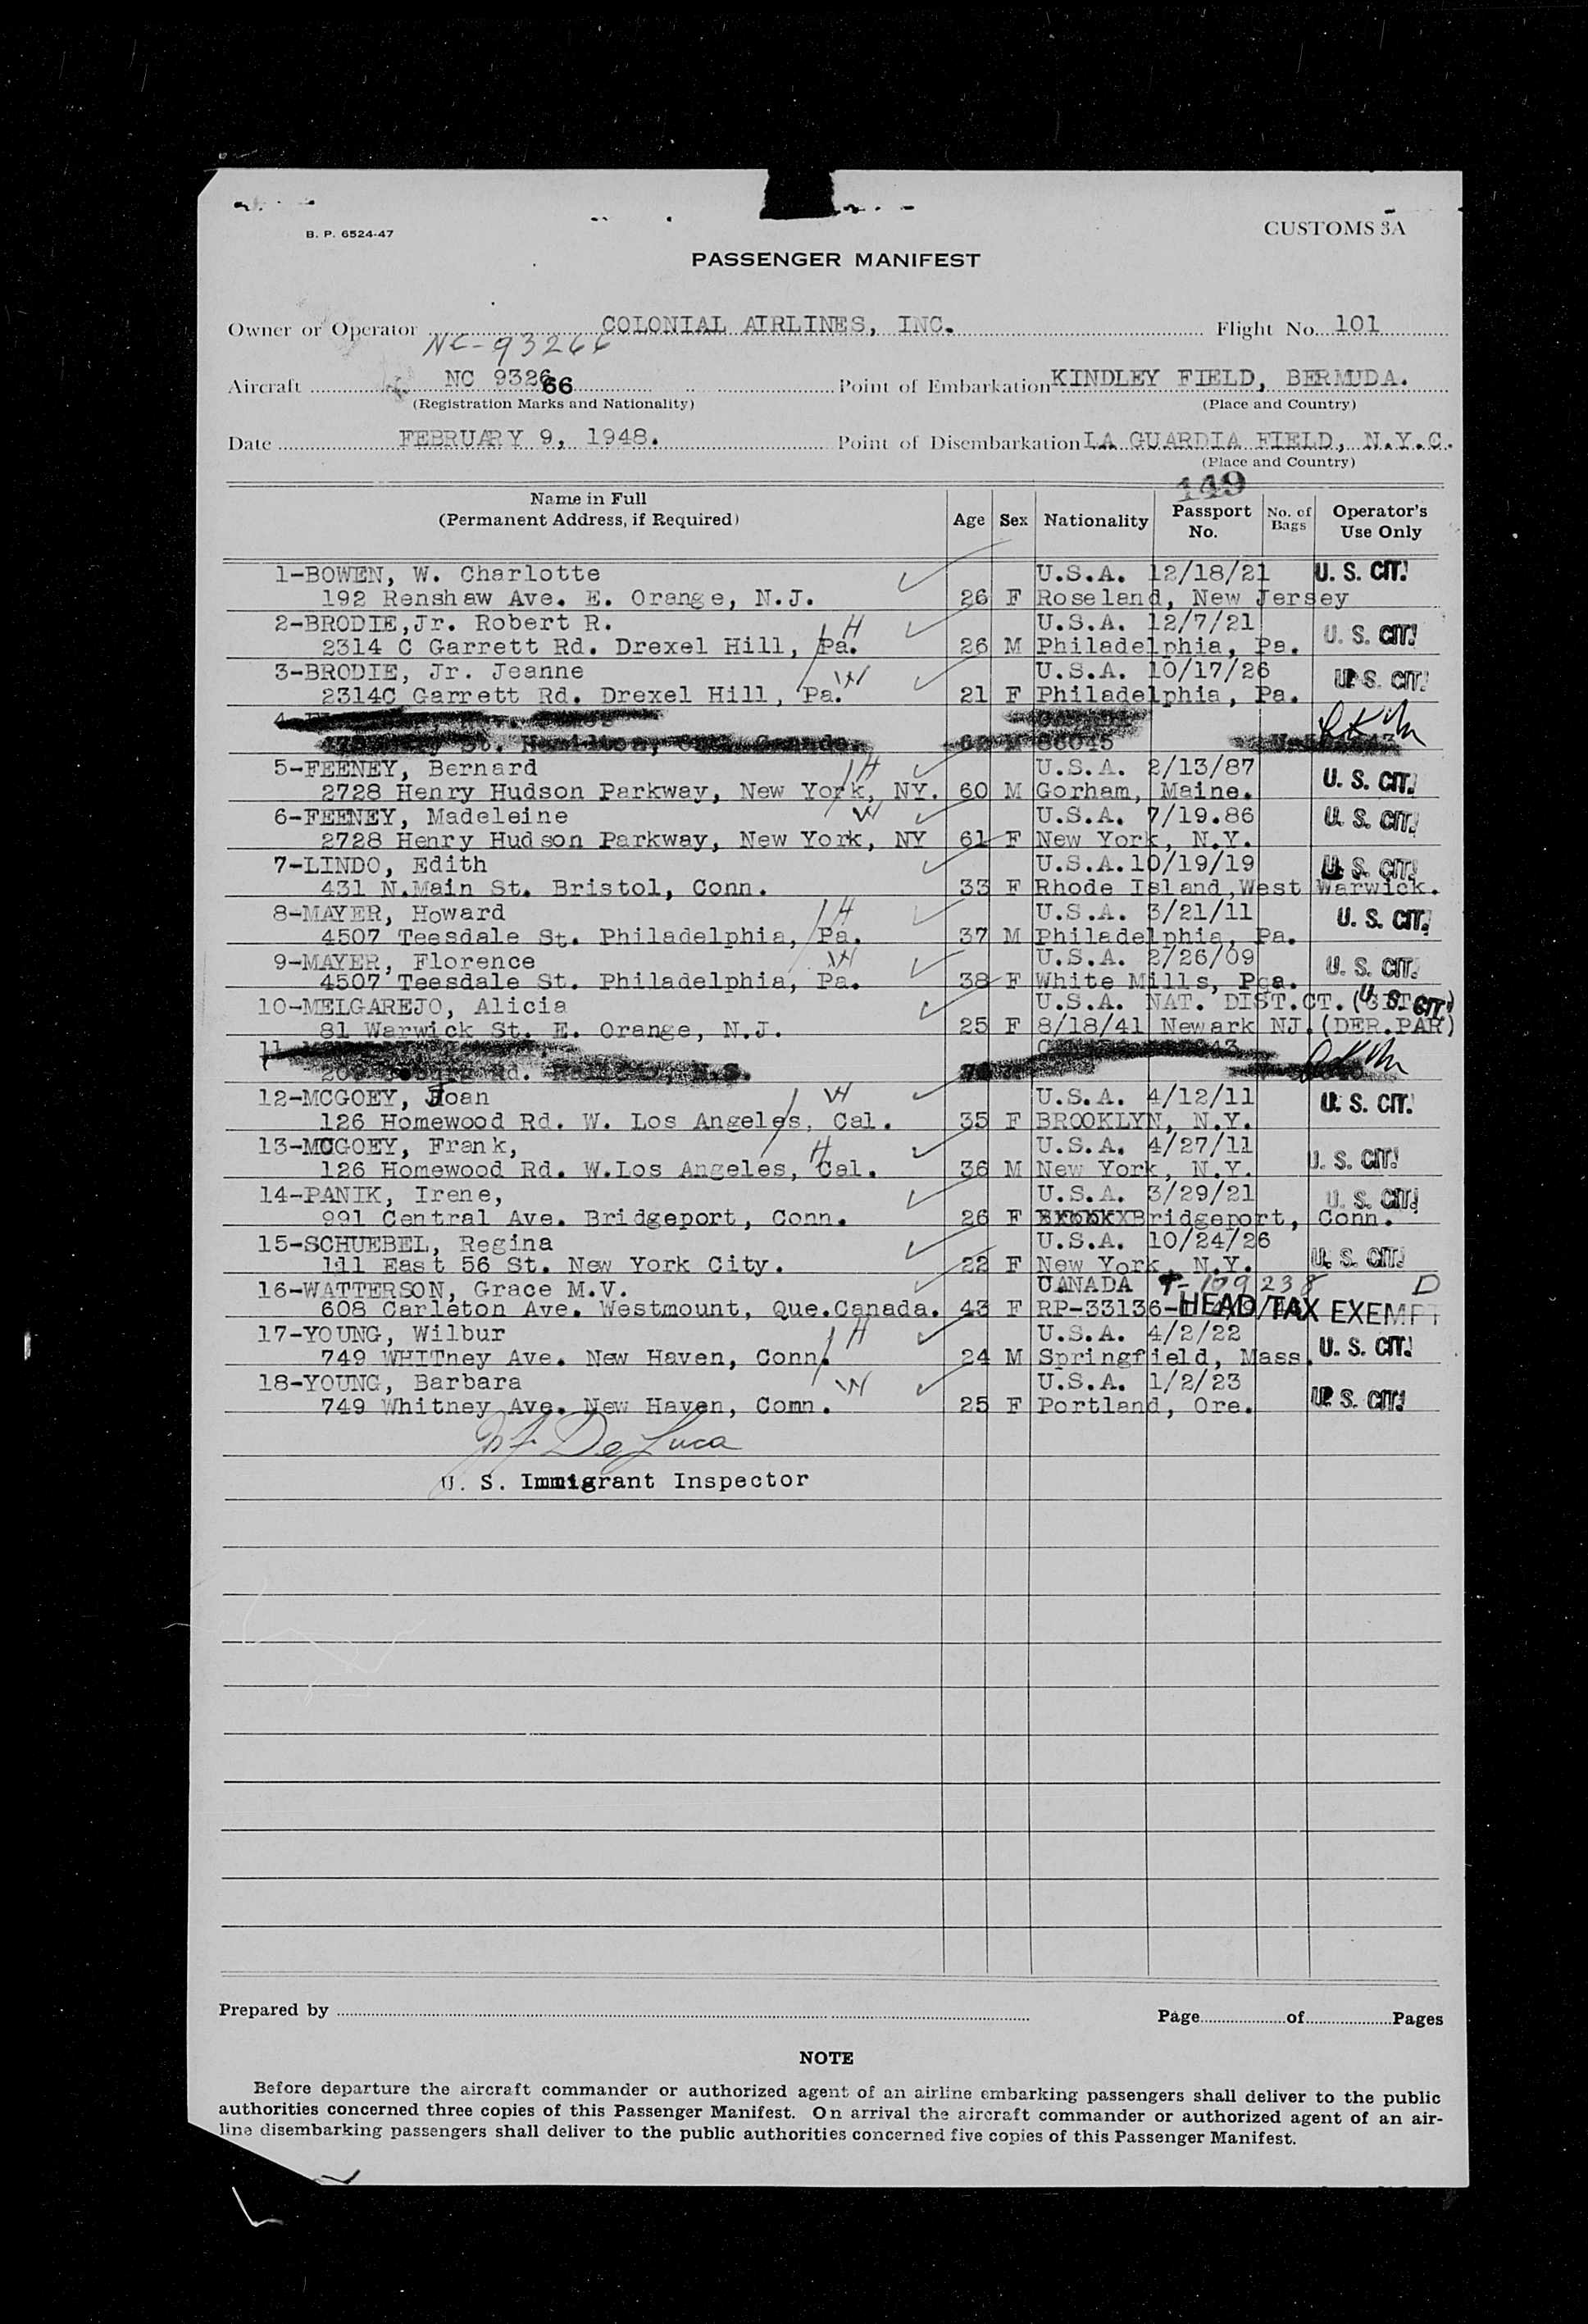 B. P. 6524-47
CUSTOMS 3A
PASSENGER MANIFEST
Owner or Operator COLONIAL AIRLINES, INC. Flight No. 101
NC-93266
Aircraft NC 932666 Point of Embarkation KINDLEY FIELD, BERMUDA.
(Registration Marks and Nationality) (Place and Country)
Date FEBRUARY 9, 1948. Point of Disembarkation LA GUARDIA FIELD, N.Y.C.
(Place and Country)
149
Name in Full
(Permanent Address, if Required) Age Sex Nationality Passport No. No. of Bags Operator's Use Only
1-BOWEN, W. Charlotte U.S.A. 12/18/21 U. S. CIT.
192 Renshaw Ave. E. Orange, N.J. 26 F Roseland, New Jersey
2-BRODIE,Jr. Robert R. H U.S.A. 12/7/21 U. S. CIT.
2314 C Garrett Rd. Drexel Hill, Pa. 26 M Philadelphia, Pa.
3-BRODIE, Jr. Jeanne W U.S.A. 10/17/26 U. S. CIT.
2314C Garrett Rd. Drexel Hill, Pa. 21 F Philadelphia, Pa.
St. Hamilton, Canada. M 86045
5-FEENEY, Bernard H U.S.A. 2/13/87 U. S. CIT.
2728 Henry Hudson Parkway, New York, NY. 60 M Gorham, Maine.
6-FEENEY, Madeleine W U.S.A. 7/19.86 U. S. CIT.
2728 Henry Hudson Parkway, New York, NY 61 F New York, N.Y.
7-LINDO, Edith U.S.A. 10/19/19 U. S. CIT.
431 N.Main St. Bristol, Conn. 33 F Rhode Island,West Warwick.
8-MAYER, Howard H U.S.A. 3/21/11 U. S. CIT.
4507 Teesdale St. Philadelphia, Pa. 37 M Philadelphia, Pa.
9-MAYER, Florence W U.S.A. 2/26/09 U. S. CIT.
4507 Teesdale St. Philadelphia, Pa. 38 F White Mills, Pga.
10-MELGAREJO, Alicia U.S.A. NAT. DIST.CT. U. S. CIT.
81 Warwick St. E. Orange, N.J. 25 F 8/18/41 Newark NJ.(DER.PAR)
11
Rd. N.S.
12-MCGOEY, Joan W U.S.A. 4/12/11 U. S. CIT.
126 Homewood Rd. W. Los Angeles, Cal. 35 F BROOKLYN, N.Y.
13-MCGOEY, Frank, H U.S.A. 4/27/11 U. S. CIT.
126 Homewood Rd. W.Los Angeles, Cal. 36 M New York, N.Y.
14-PANIK, Irene, U.S.A. 3/29/21 U. S. CIT.
991 Central Ave. Bridgeport, Conn. 26 F Bridgeport, Conn.
15-SCHUEBEL, Regina U.S.A. 10/24/26 U. S. CIT.
111 East 56 St. New York City. 22 F New York, N.Y.
16-WATTERSON, Grace M.V. CANADA D
608 Carleton Ave. Westmount, Que.Canada. 43 F RP-33136- HEAD TAX EXEMPT
17-YOUNG, Wilbur H U.S.A. 4/2/22 U. S. CIT.
749 WHITney Ave. New Haven, Conn. 24 M Springfield, Mass.
18-YOUNG, Barbara W U.S.A. 1/2/23 U. S. CIT.
749 Whitney Ave. New Haven, Conn. 25 F Portland, Ore.
De Luca
U. S. Immigrant Inspector
Prepared by Page of Pages
NOTE
Before departure the aircraft commander or authorized agent of an airline embarking passengers shall deliver to the public
authorities concerned three copies of this Passenger Manifest. On arrival the aircraft commander or authorized agent of an air-
line disembarking passengers shall deliver to the public authorities concerned five copies of this Passenger Manifest.